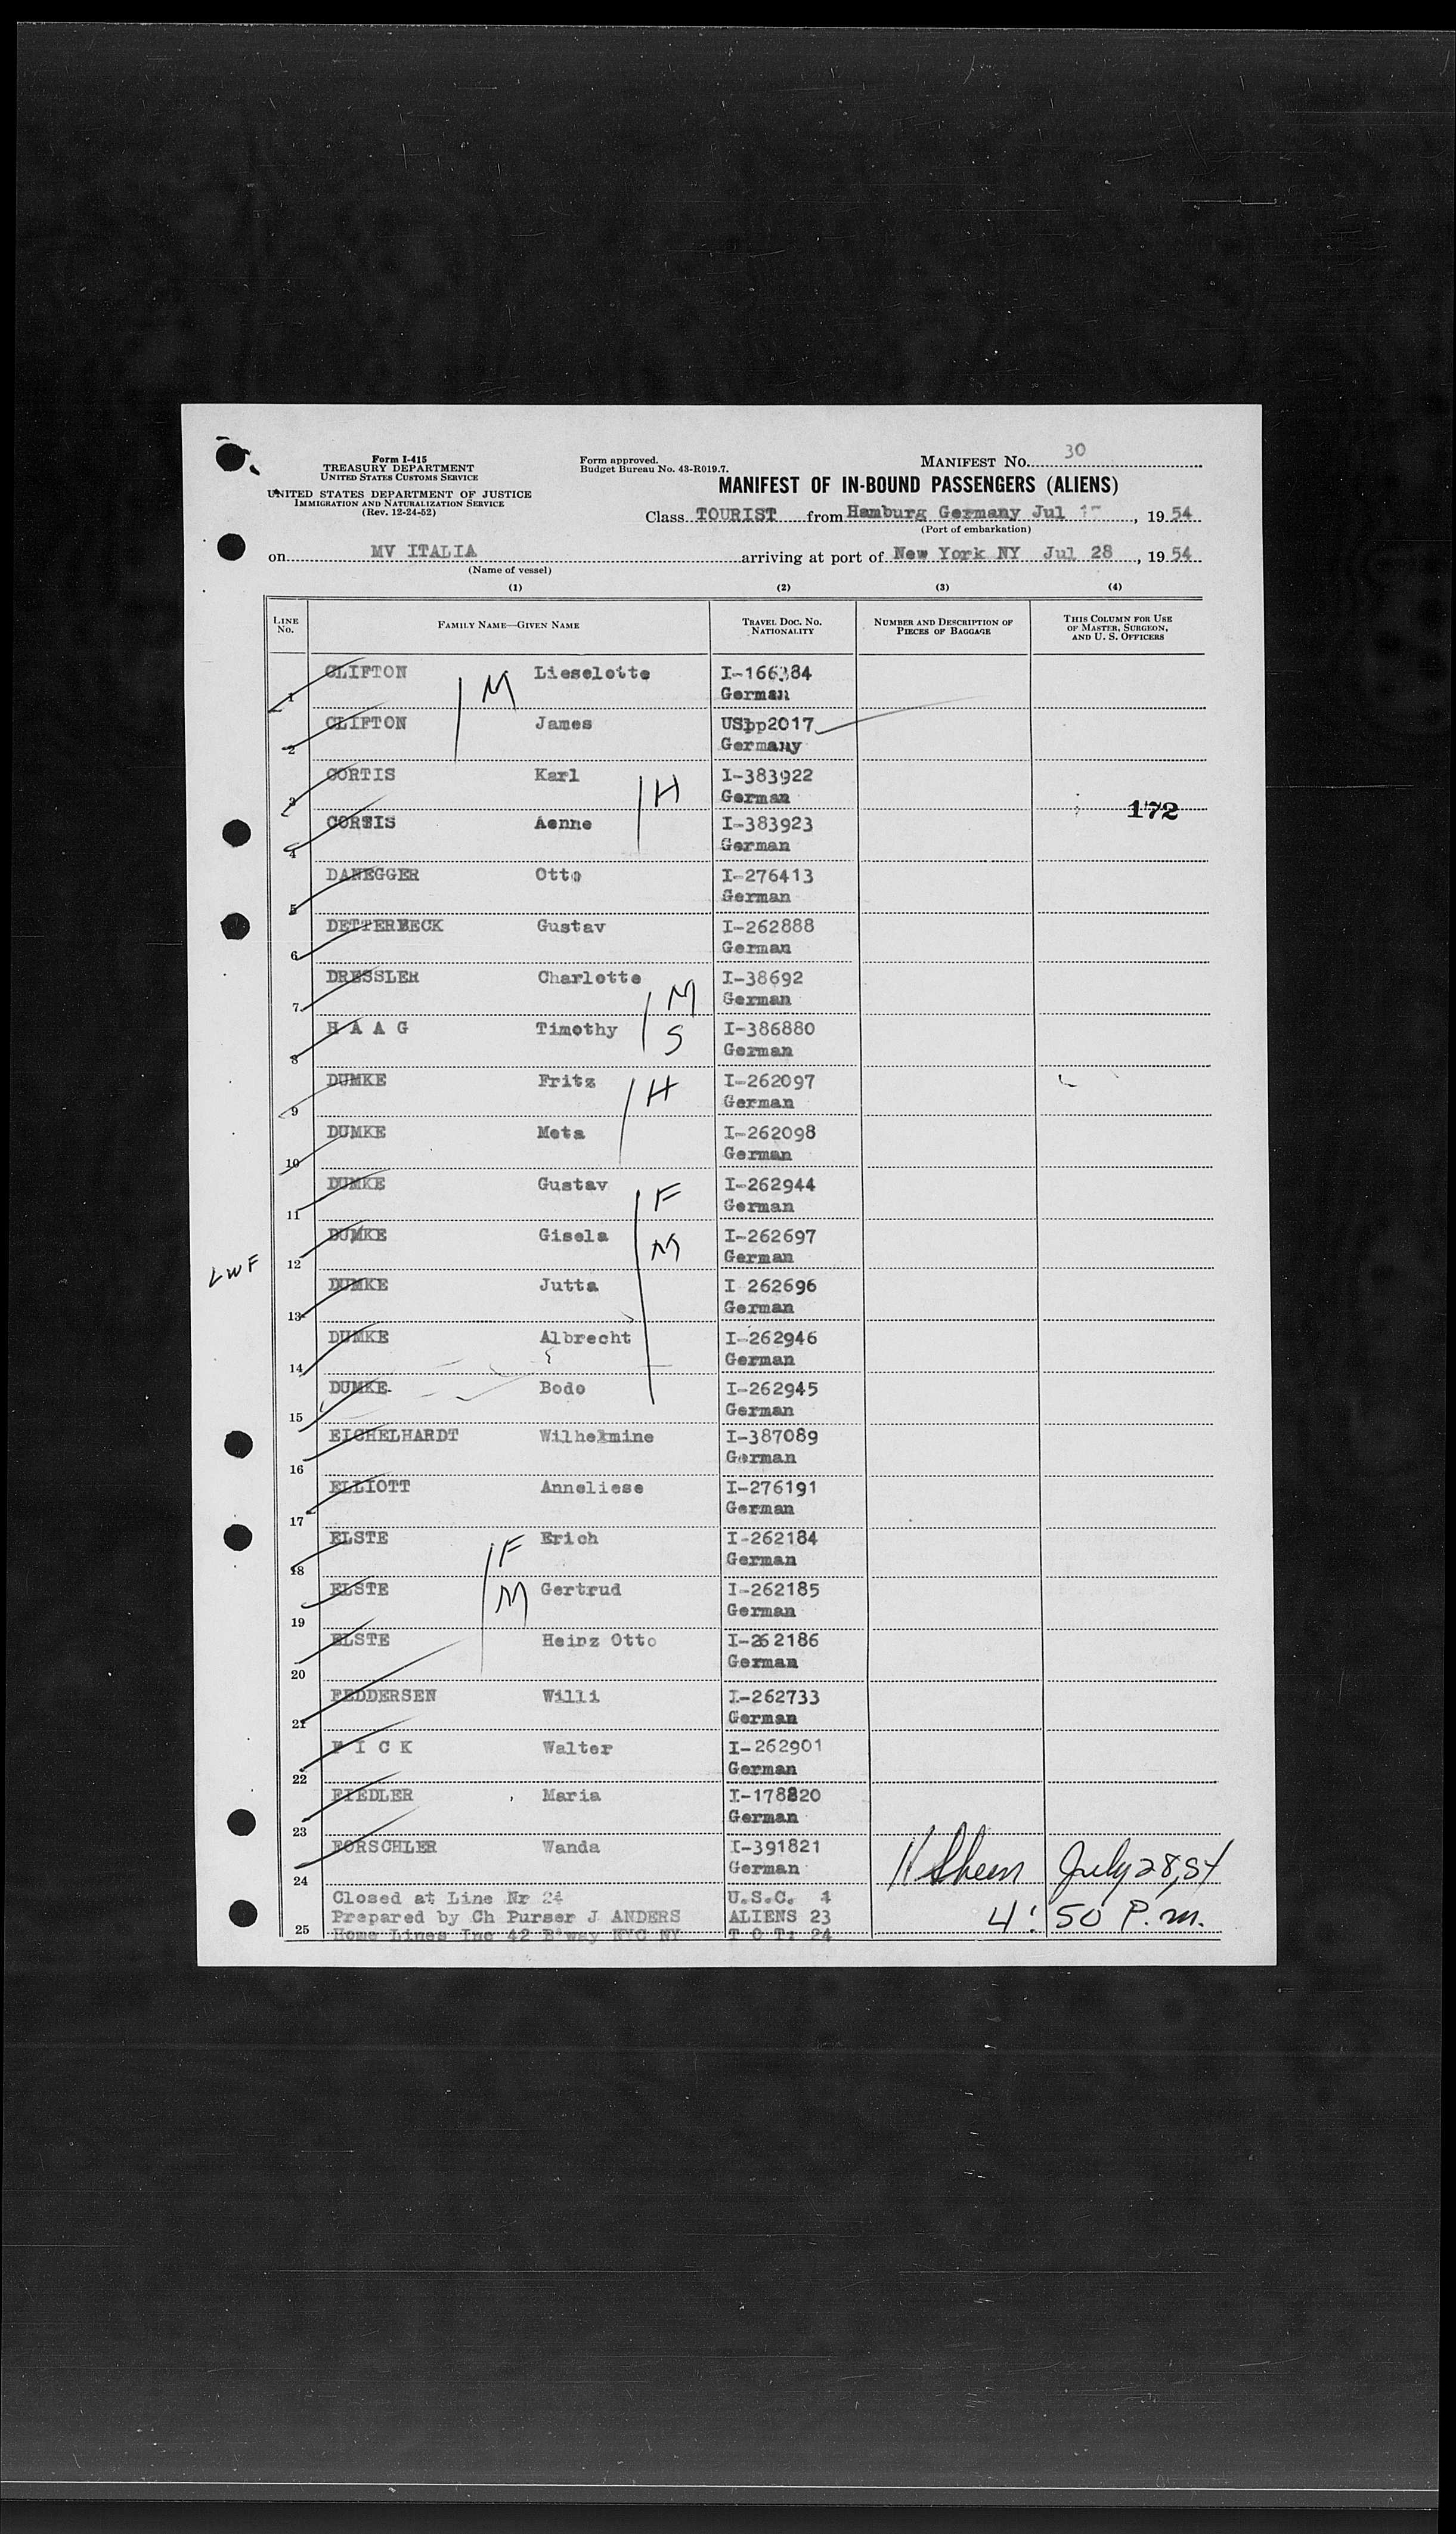 Form I-415
TREASURY DEPARTMENT
UNITED STATES CUSTOMS SERVICE
UNITED STATES DEPARTMENT OF JUSTICE
IMMIGRATION AND NATURALIZATION SERVICE
(Rev. 12-24-52)
Form approved.
Budget Bureau No. 43-R019.7.
MANIFEST No. 30
MANIFEST OF IN-BOUND PASSENGERS (ALIENS)
Class TOURIST from Hamburg Germany Jul 17, 1954
(Port of embarkation)
on MV ITALIA arriving at port of New York NY Jul 28, 1954
(Name of vessel)
(1) (2) (3) (4)
LINE No. FAMILY NAME—GIVEN NAME TRAVEL DOC. NO. NATIONALITY NUMBER AND DESCRIPTION OF PIECES OF BAGGAGE THIS COLUMN FOR USE OF MASTER, SURGEON, AND U. S. OFFICERS
1 CLIFTON M Lieselotte I-166384
German
2 CLIFTON James USpp2017
Germany
3 CORTIS Karl H I-383922
German
172
4 CORTIS Aenne I-383923
German
5 DANEGGER Otto I-276413
German
6 DETTERBECK Gustav I-262888
German
7 DRESSLER Charlotte M I-38692
German
8 H A A G Timothy S I-386880
German
9 DUMKE Fritz H I-262097
German
10 DUMKE Meta I-262098
German
11 DUMKE Gustav F I-262944
German
12 DUMKE Gisela M I-262697
German
LWF
13 DUMKE Jutta I 262696
German
14 DUMKE Albrecht I-262946
German
15 DUMKE Bodo I-262945
German
16 EICHELHARDT Wilhelmine I-387089
German
17 ELLIOTT Anneliese I-276191
German
18 ELSTE F Erich I-262184
German
19 ELSTE M Gertrud I-262185
German
20 ELSTE Heinz Otto I-262186
German
21 FEDDERSEN Willi I-262733
German
22 F I C K Walter I-262901
German
23 FIEDLER Maria I-178820
German
24 FORSCHLER Wanda I-391821
German
July 28, 54
Closed at Line Nr 24 U.S.C. 1
Prepared by Ch Purser J ANDERS ALIENS 23
4:50 P.m.
25 Home Lines Inc 42 B'way NYC NY T O T: 24